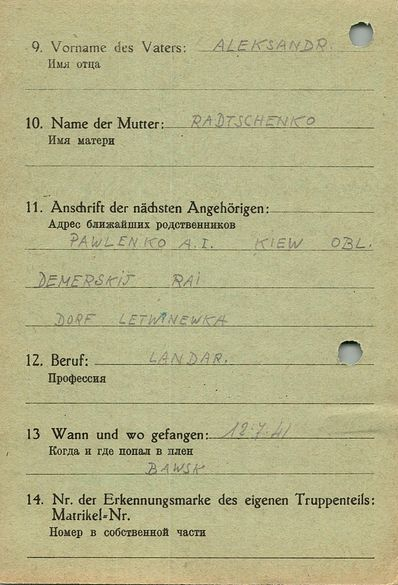 9. Vorname des Vaters: ALEKSANDR.
Имя отца
10. Name der Mutter: RADTSCHENKO
Имя матери
11. Anschrift der nächsten Angehörigen:
Адрес ближайших родственников
PAWLENKO A.I. KIEW OBL.
DEMERSKIJ RAI
DORF LETWINEWKA
12. Beruf: LANDAR.
Профессия
13 Wann und wo gefangen: 12.7.41
Когда и где попал в плен
BAWSK
14. Nr. der Erkennungsmarke des eigenen Truppenteils:
Matrikel-Nr.
Номер в собственной части